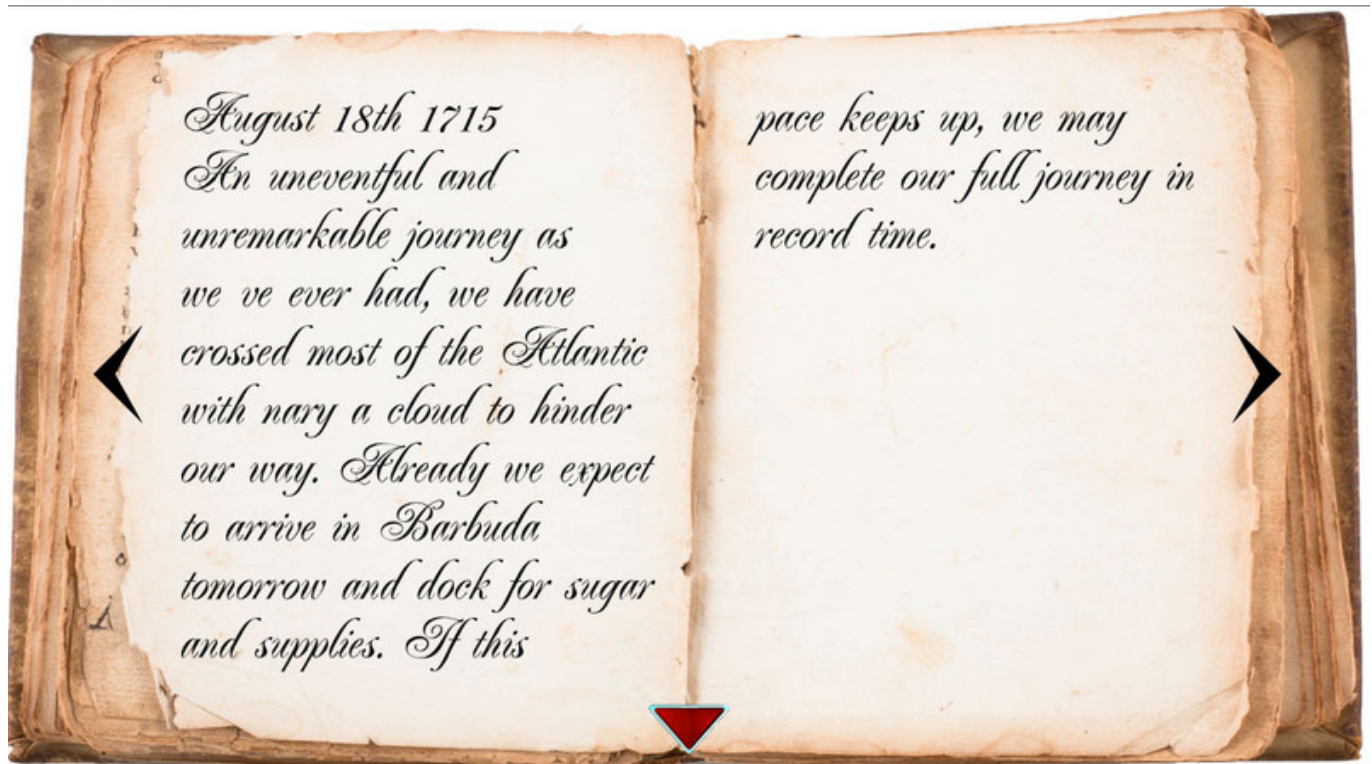 August 18th 1715
An uneventful and
unremarkable journey as
we ve ever had, we have
crossed most of the Atlantic
with nary a cloud to hinder
our way. Already we expect
to arrive in Barbuda
tomorrow and dock for sugar
and supplies. If this
pace keeps up, we may
complete our full journey in
record time.